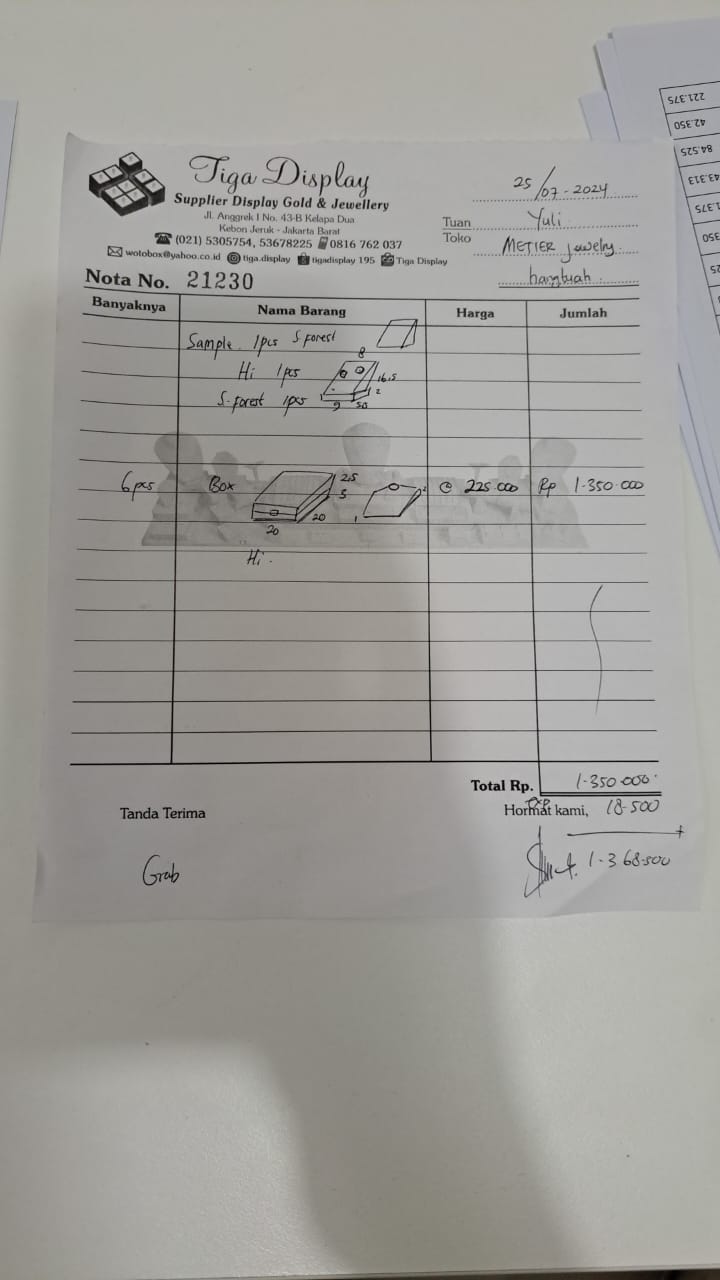 Tiga Display
Supplier Display Gold & Jewellery
Jl. Anggrek I No. 43-B Kelapa Dua
Kebon Jeruk - Jakarta Barat
(021) 5305754, 53678225 0816 762 037
wotobox@yahoo.co.id tiga.display tigadisplay 195 Tiga Display
25/07-2024
Tuan Yuli
Toko METIER jewelry
hangtuah
Nota No. 21230
Banyaknya Nama Barang Harga Jumlah
Sample 1pcs S forest
8
Hi 1pcs 16.5
2
S.forest 1pcs 9
6pcs Box 25 5 @ 225.000 Rp 1.350.000
20 20
Hi.
Total Rp. 1.350.000
Tanda Terima Hormat kami, 18.500
Grab 1.368.500
221.375
42.350
84.525